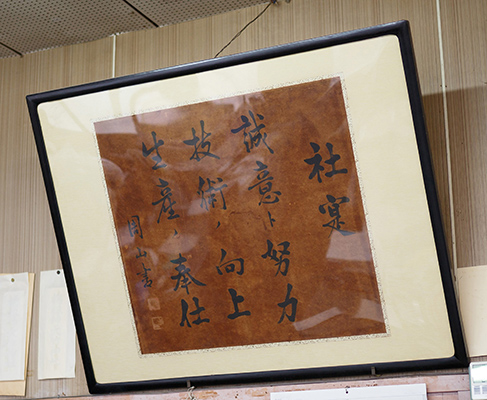 社寔
誠意ト努力
技術ノ向上
生産ニ奉仕
周山書